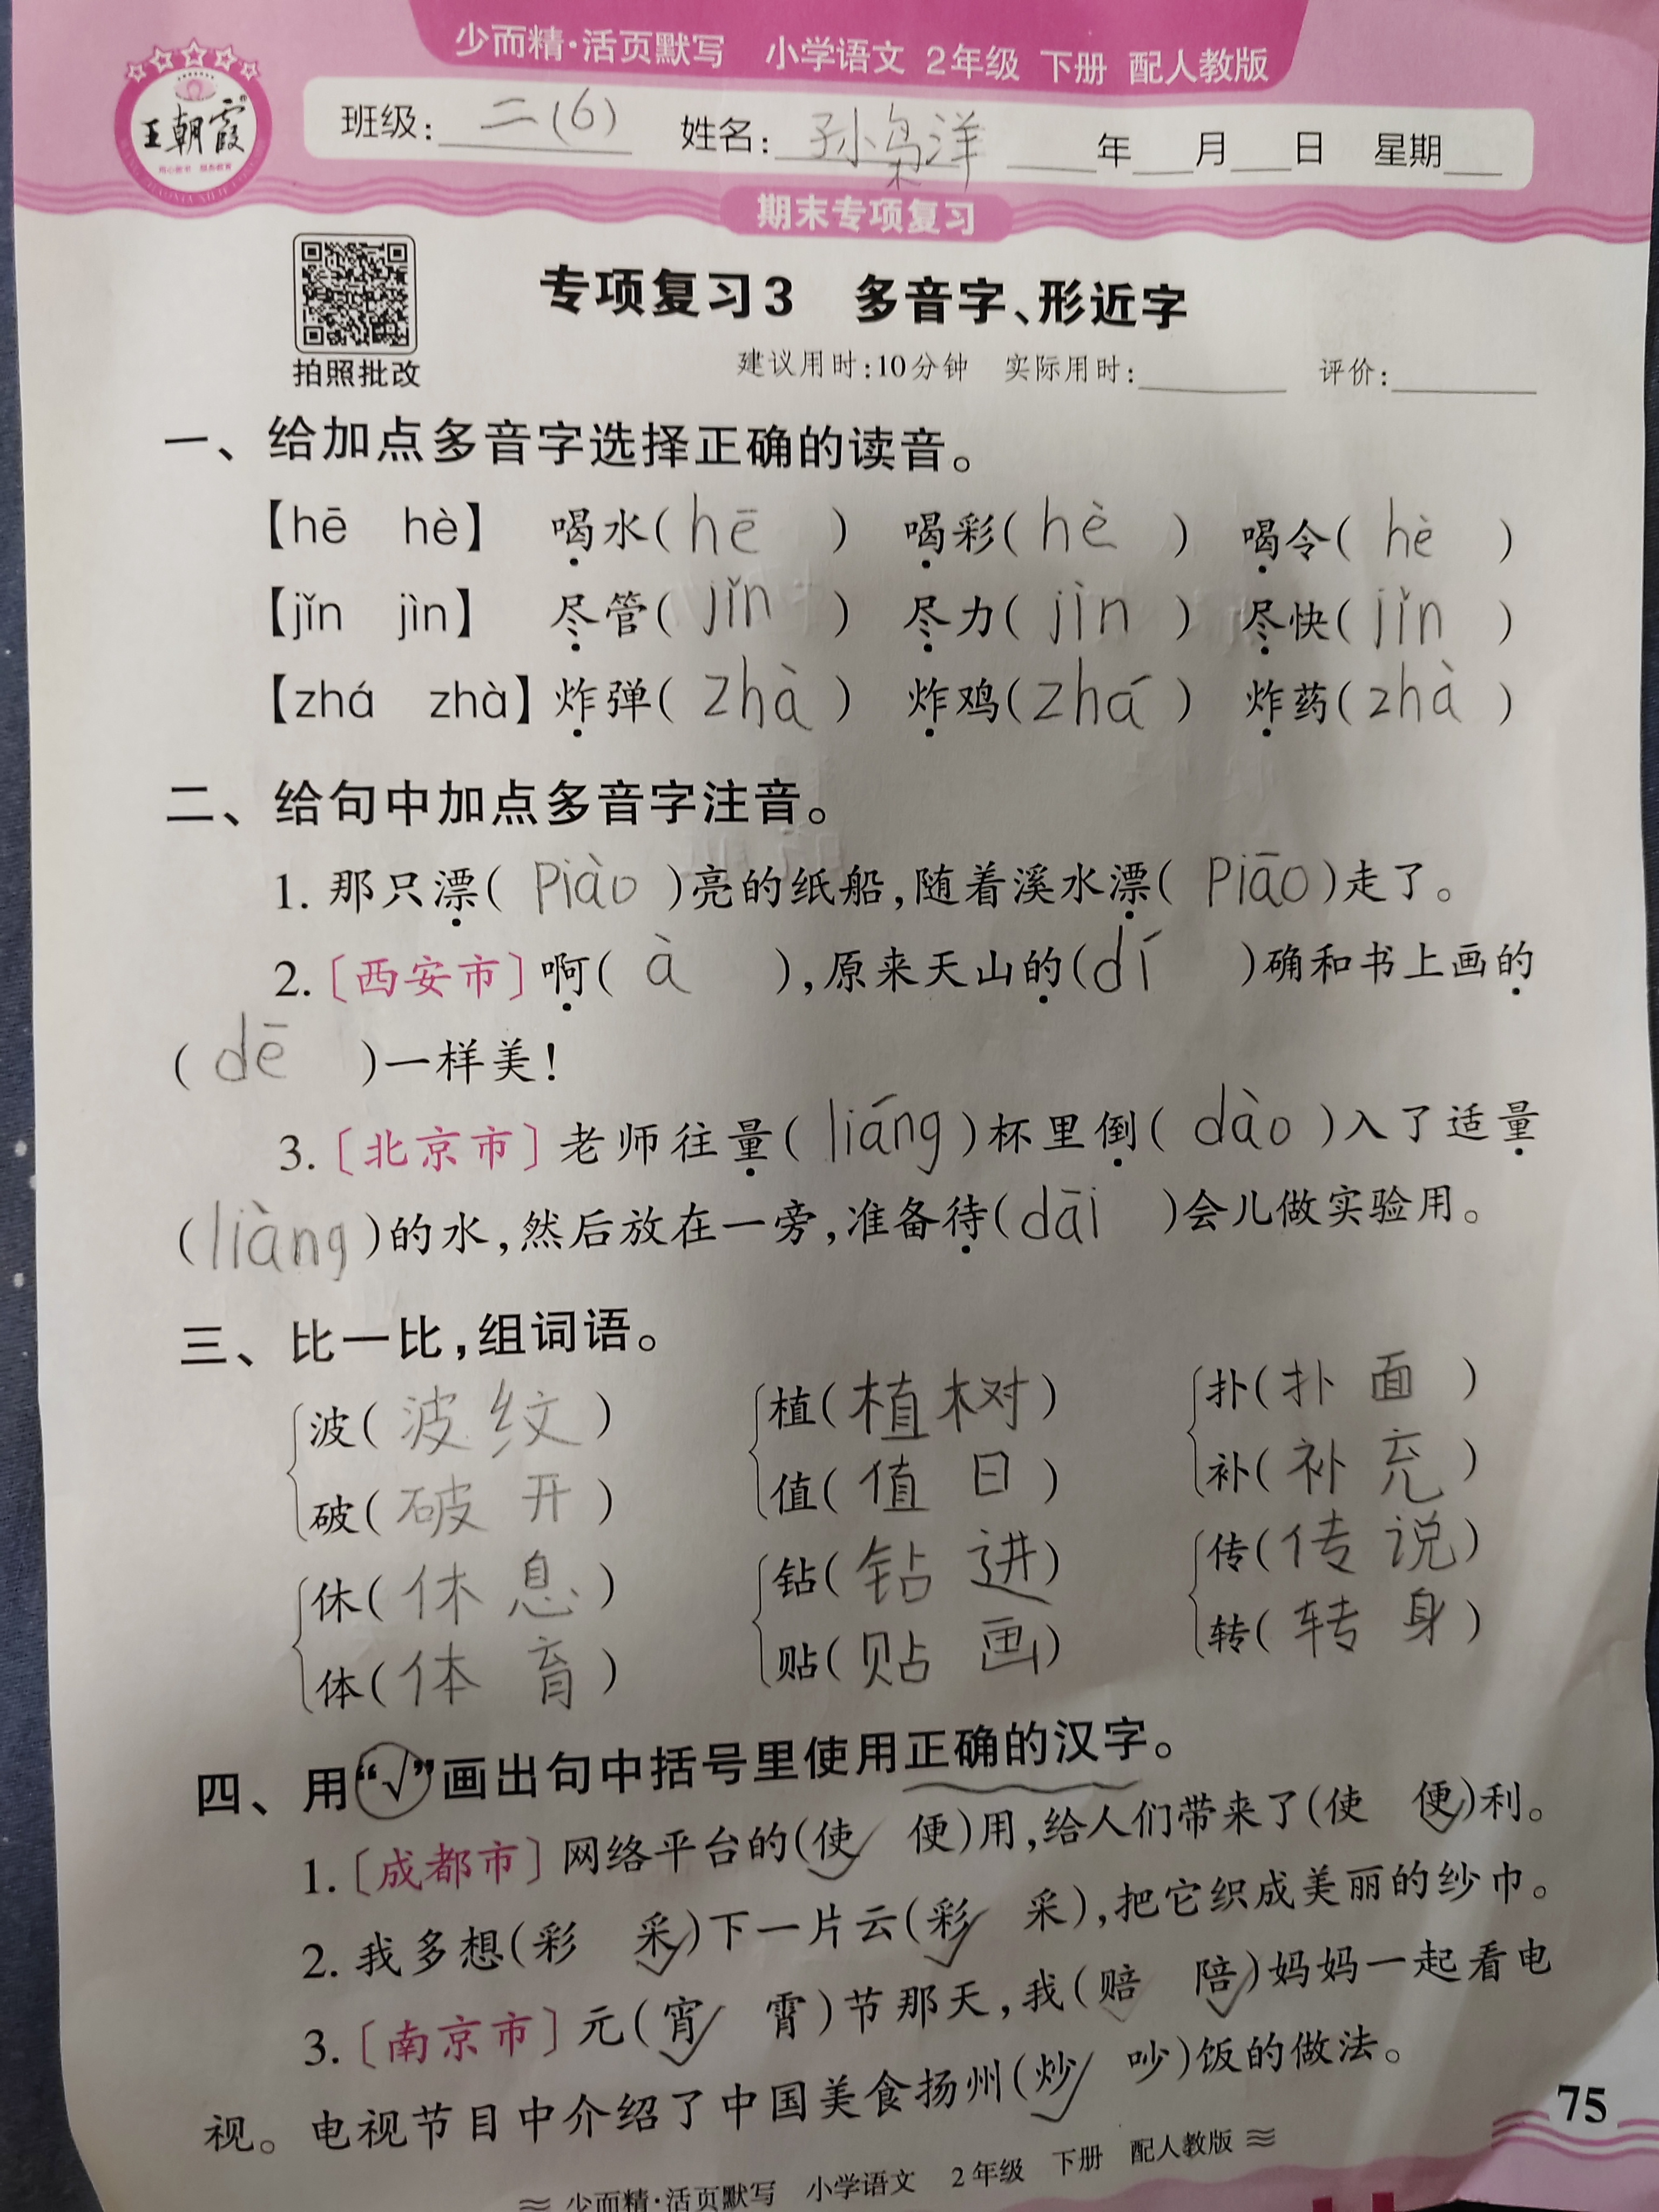 少而精·活页默写 小学语文 2年级 下册 配人教版
王朝霞
班级: 二(6) 姓名: 孙枭洋 年 月 日 星期
期末专项复习
专项复习3 多音字、形近字
拍照批改
建议用时:10分钟 实际用时: 评价:
一、给加点多音字选择正确的读音。
【hē hè】 喝水(hē) 喝彩(hè) 喝令(hè)
【jǐn jìn】 尽管(jǐn) 尽力(jìn) 尽快(jǐn)
【zhá zhà】 炸弹(zhà) 炸鸡(zhá) 炸药(zhà)
二、给句中加点多音字注音。
1. 那只漂(piào)亮的纸船,随着溪水漂(piāo)走了。
2.〔西安市〕啊(à),原来天山的(dí)确和书上画的
(dē)一样美!
3.〔北京市〕老师往量(liáng)杯里倒(dào)入了适量
(liàng)的水,然后放在一旁,准备待(dāi)会儿做实验用。
三、比一比,组词语。
波(波纹) 植(植树) 扑(扑面)
破(破开) 值(值日) 补(补充)
休(休息) 钻(钻进) 传(传说)
体(体育) 贴(贴画) 转(转身)
四、用“√”画出句中括号里使用正确的汉字。
1.〔成都市〕网络平台的(使√ 便)用,给人们带来了(使 便√)利。
2. 我多想(彩 采√)下一片云(彩√ 采),把它织成美丽的纱巾。
3.〔南京市〕元(宵√ 霄)节那天,我(赔 陪√)妈妈一起看电
视。电视节目中介绍了中国美食扬州(炒√ 吵)饭的做法。
75
少而精·活页默写 小学语文 2年级 下册 配人教版